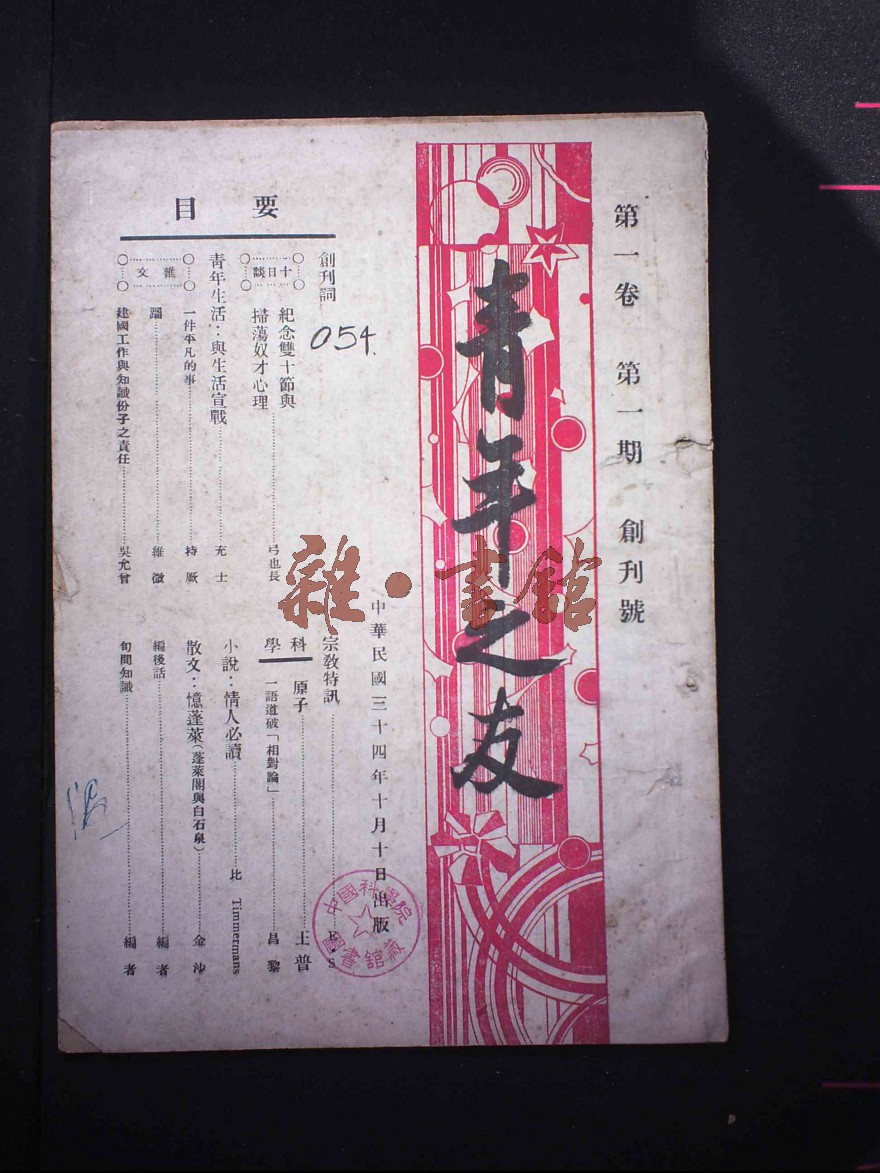 第一卷 第一期 創刊號
青年之友
中華民國三十四年十月十日出版
要目
創刊詞
十日談
紀念雙十節與
掃蕩奴才心理
弓也長
青年生活：與生活宣戰
充士
雜文
一件平凡的事
特厭
蹓
維微
建國工作與知識份子之責任
吳允曾
宗教特訊
E.S
科學
原子
王普
一語道破「相對論」
昌黎
小說：情人必讀
比 Timmermans
散文：憶蓬萊（蓬萊閣與白石泉）
金沙
編後話
編者
旬間知識
編者
054.
中國科學院
圖書館藏
雜·書館